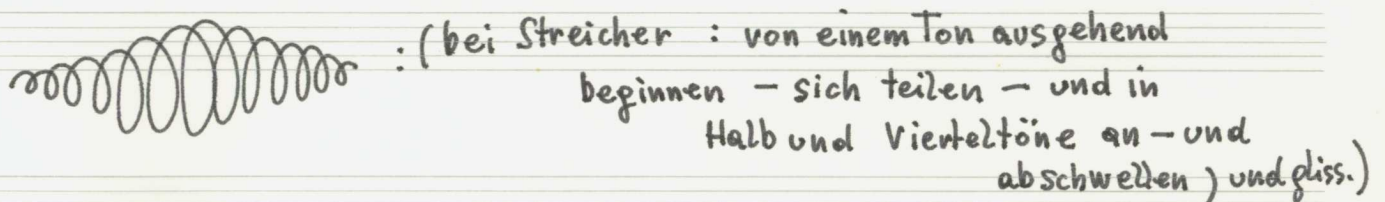 : (bei Streicher : von einem Ton ausgehend
beginnen – sich teilen – und in
Halb und Vierteltöne an – und
abschwellen ) und gliss.)